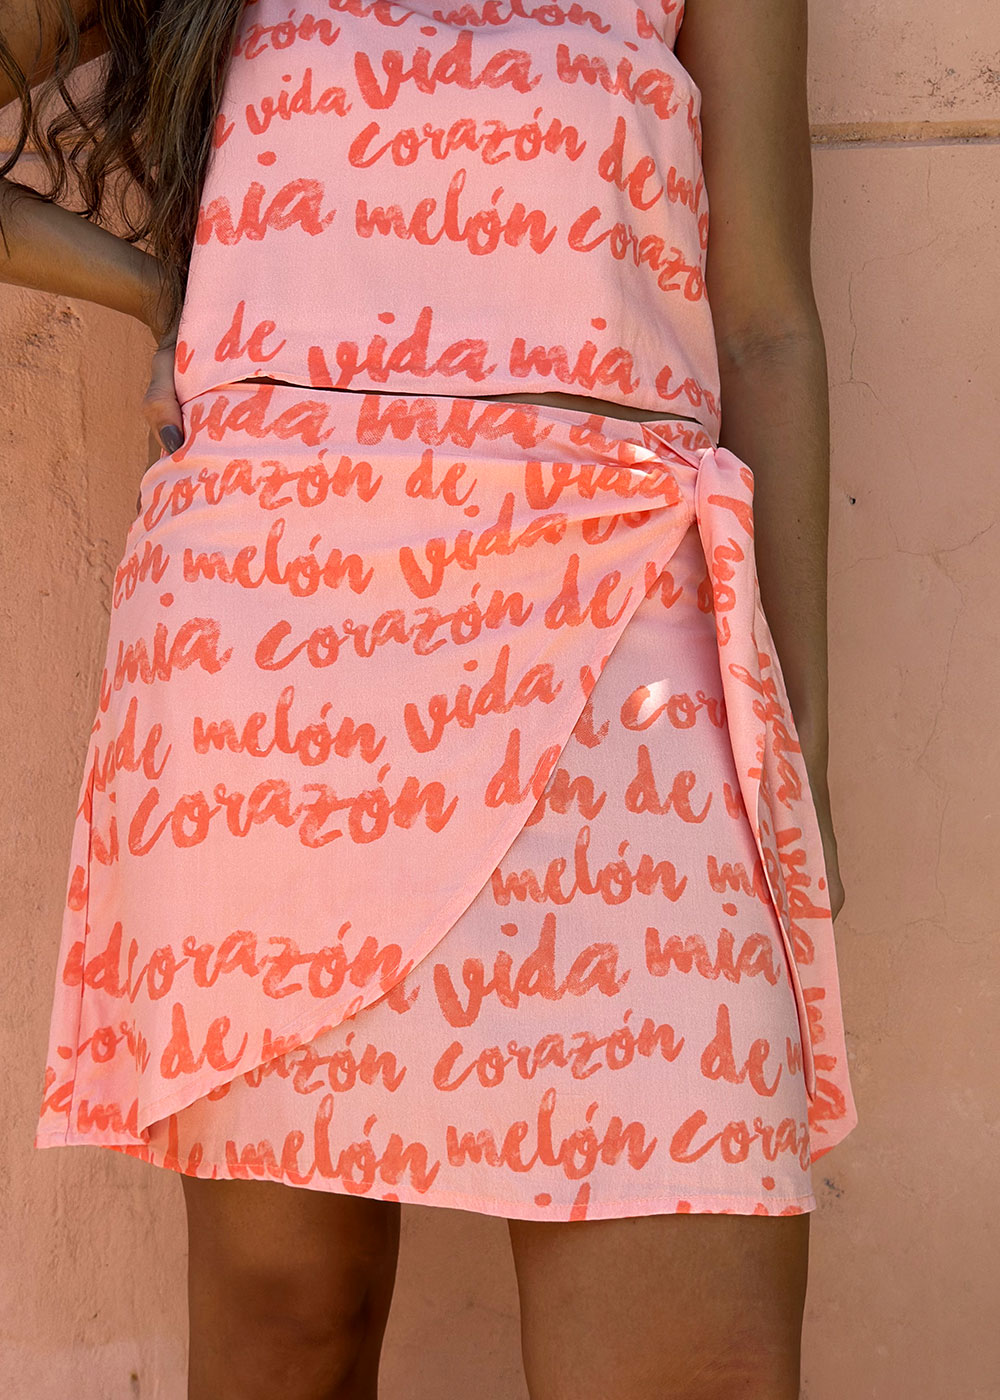 de melón
corazón
vida vida mia
corazón de
mia melón corazón
de vida mia
vida mia
corazón de vida
melón vida
mia corazón de
de melón vida corazón
corazón de de
melón
corazón vida mia
de corazón de
melón melón corazón
vida